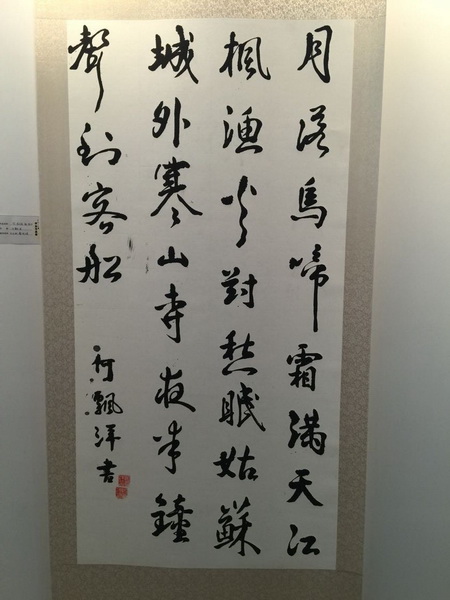 月落烏啼霜滿天江
楓漁火對愁眠姑蘇
城外寒山寺夜半鐘
聲到客船
何飄洋書